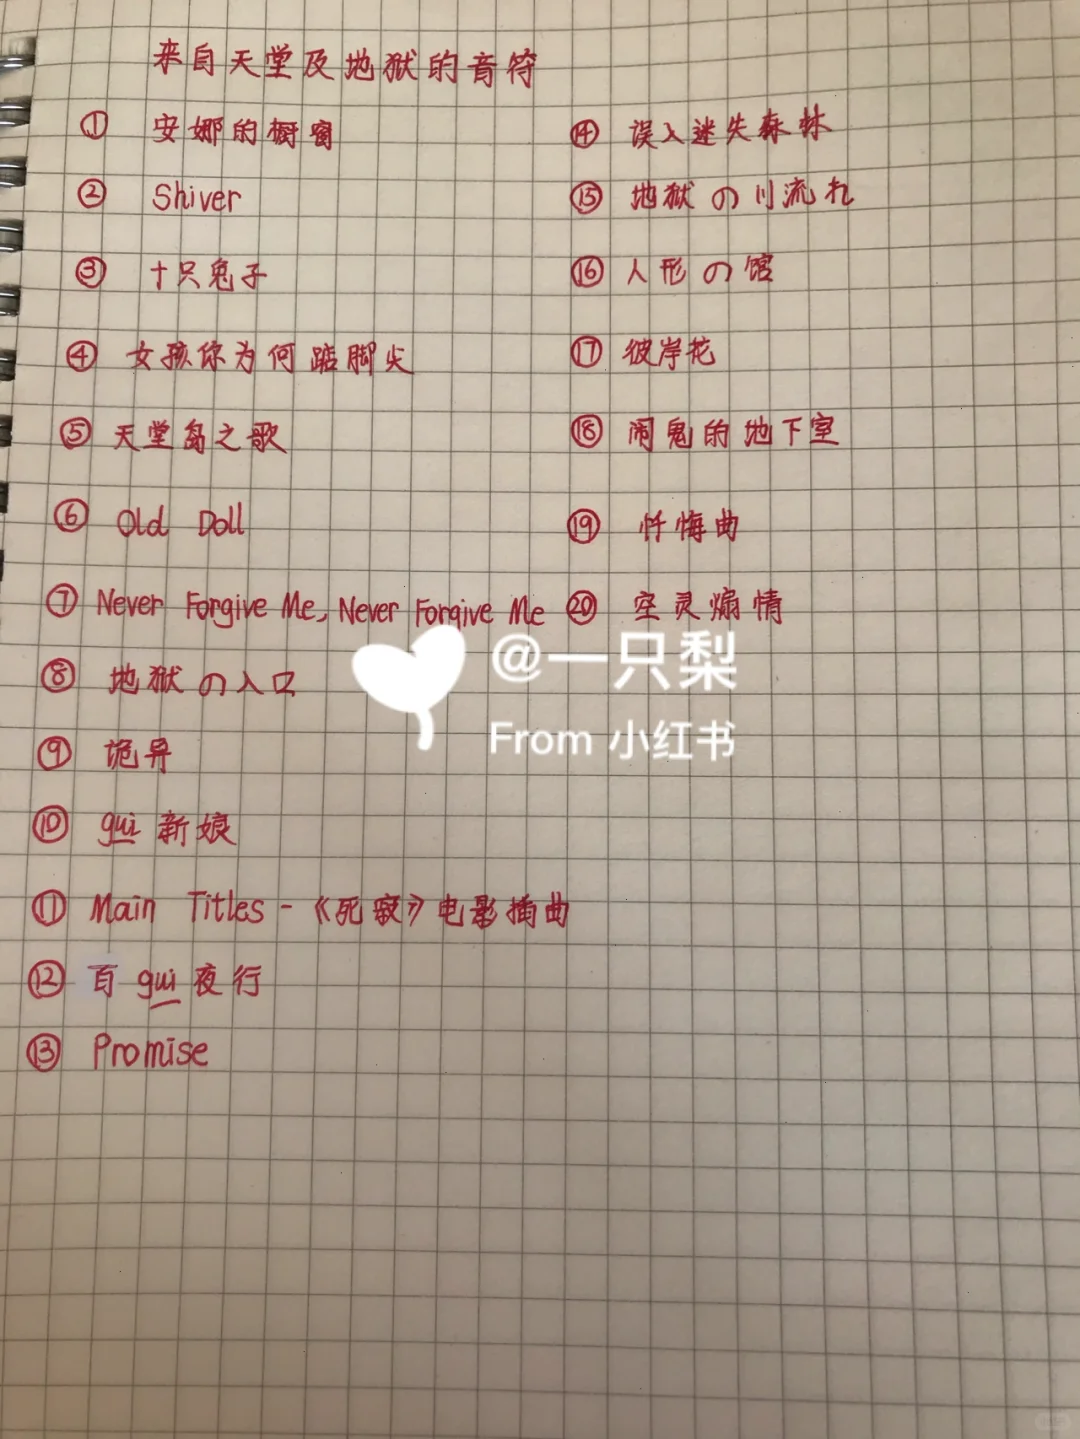 来自天堂及地狱的音符
① 安娜的橱窗
② Shiver
③ 十只兔子
④ 女孩你为何踮脚尖
⑤ 天堂岛之歌
⑥ Old Doll
⑦ Never Forgive Me, Never Forgive Me
⑧ 地狱の入口
⑨ 诡异
⑩ gui 新娘
⑪ Main Titles - 《死寂》电影插曲
⑫ 百 gui 夜行
⑬ Promise
⑭ 误入迷失森林
⑮ 地狱の川流れ
⑯ 人形の馆
⑰ 彼岸花
⑱ 闹鬼的地下室
⑲ 忏悔曲
⑳ 空灵煽情
@一只梨
From 小红书